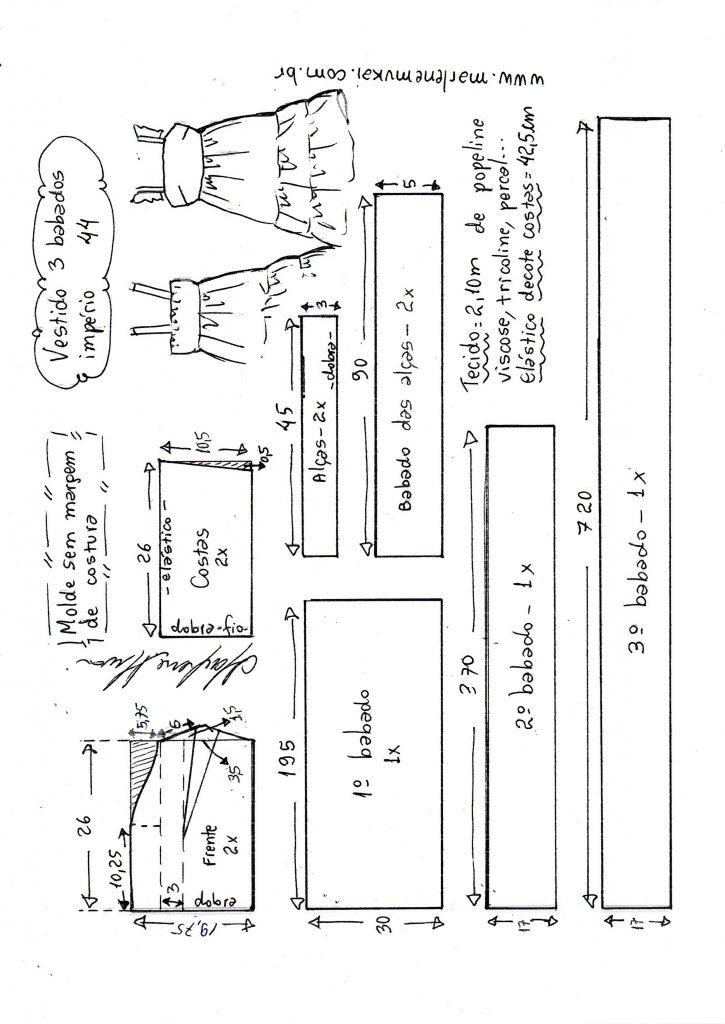 Vestido 3 babados
império 44
www.marlenemukai.com.br
Molde sem margem
de costura
26
10,25
5,75
6
1,5
3,5
3
19,75
Frente
2x
dobra
26
-elástico-
Costas
2x
dobra-fio-
10,5
0,5
45
Alças-2x -dobra-
3
90
Babado das alças-2x
5
195
1º babado
1x
30
370
2º babado-1x
17
720
3º babado-1x
17
Tecido=2,10m de popeline
viscose, tricoline, percal...
elástico decote costas=42,5cm